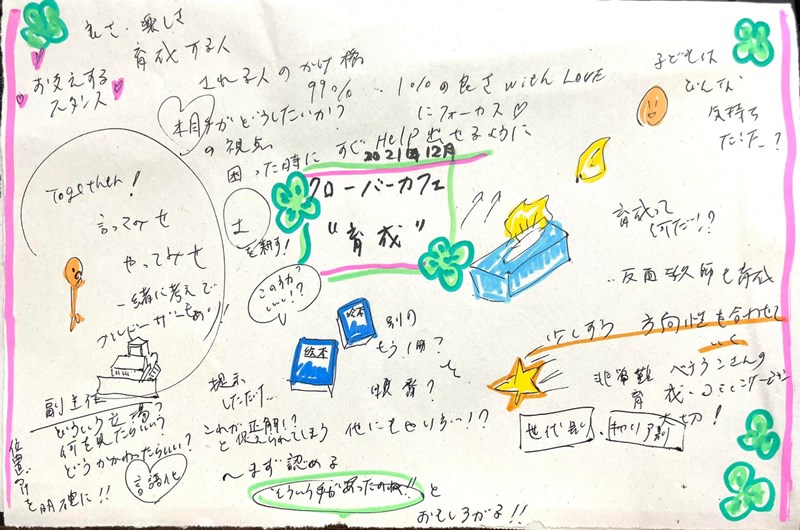 良さ・楽しさ
育成する人
される人のかけ橋
お支えする
スタンス
99%
1%の良さ with LOVE
にフォーカス♡
相手がどうしたいか?
の視点
困った時に すぐ HELP 出せるように
子どもは
どんな
気持ち
だった?
2021年12月
クローバーカフェ
“育成”
土
を耕す!
Together!
言ってみせ
やってみせ
一緒に考えて
この方が
いい!?
育成って
何だ!?
反面教師も育成
少しずつ 方向性を合わせて
いく
絵本
絵本
別の
もう1冊?
順番?
と
非常勤
ベテランさんの
育成・コミュニケーション
大切!
世代別
キャリア別
提示
しただけ…
これが正解!?
と捉えられてしまう
他にもいろいろ…!?
副主任
どういう立場?
何を見たらいい
どうかかわったらいい?
位置づけ
を明確に!!
言語化
〜まず認める
“そういう手があったのね!!”と
おもしろがる!!